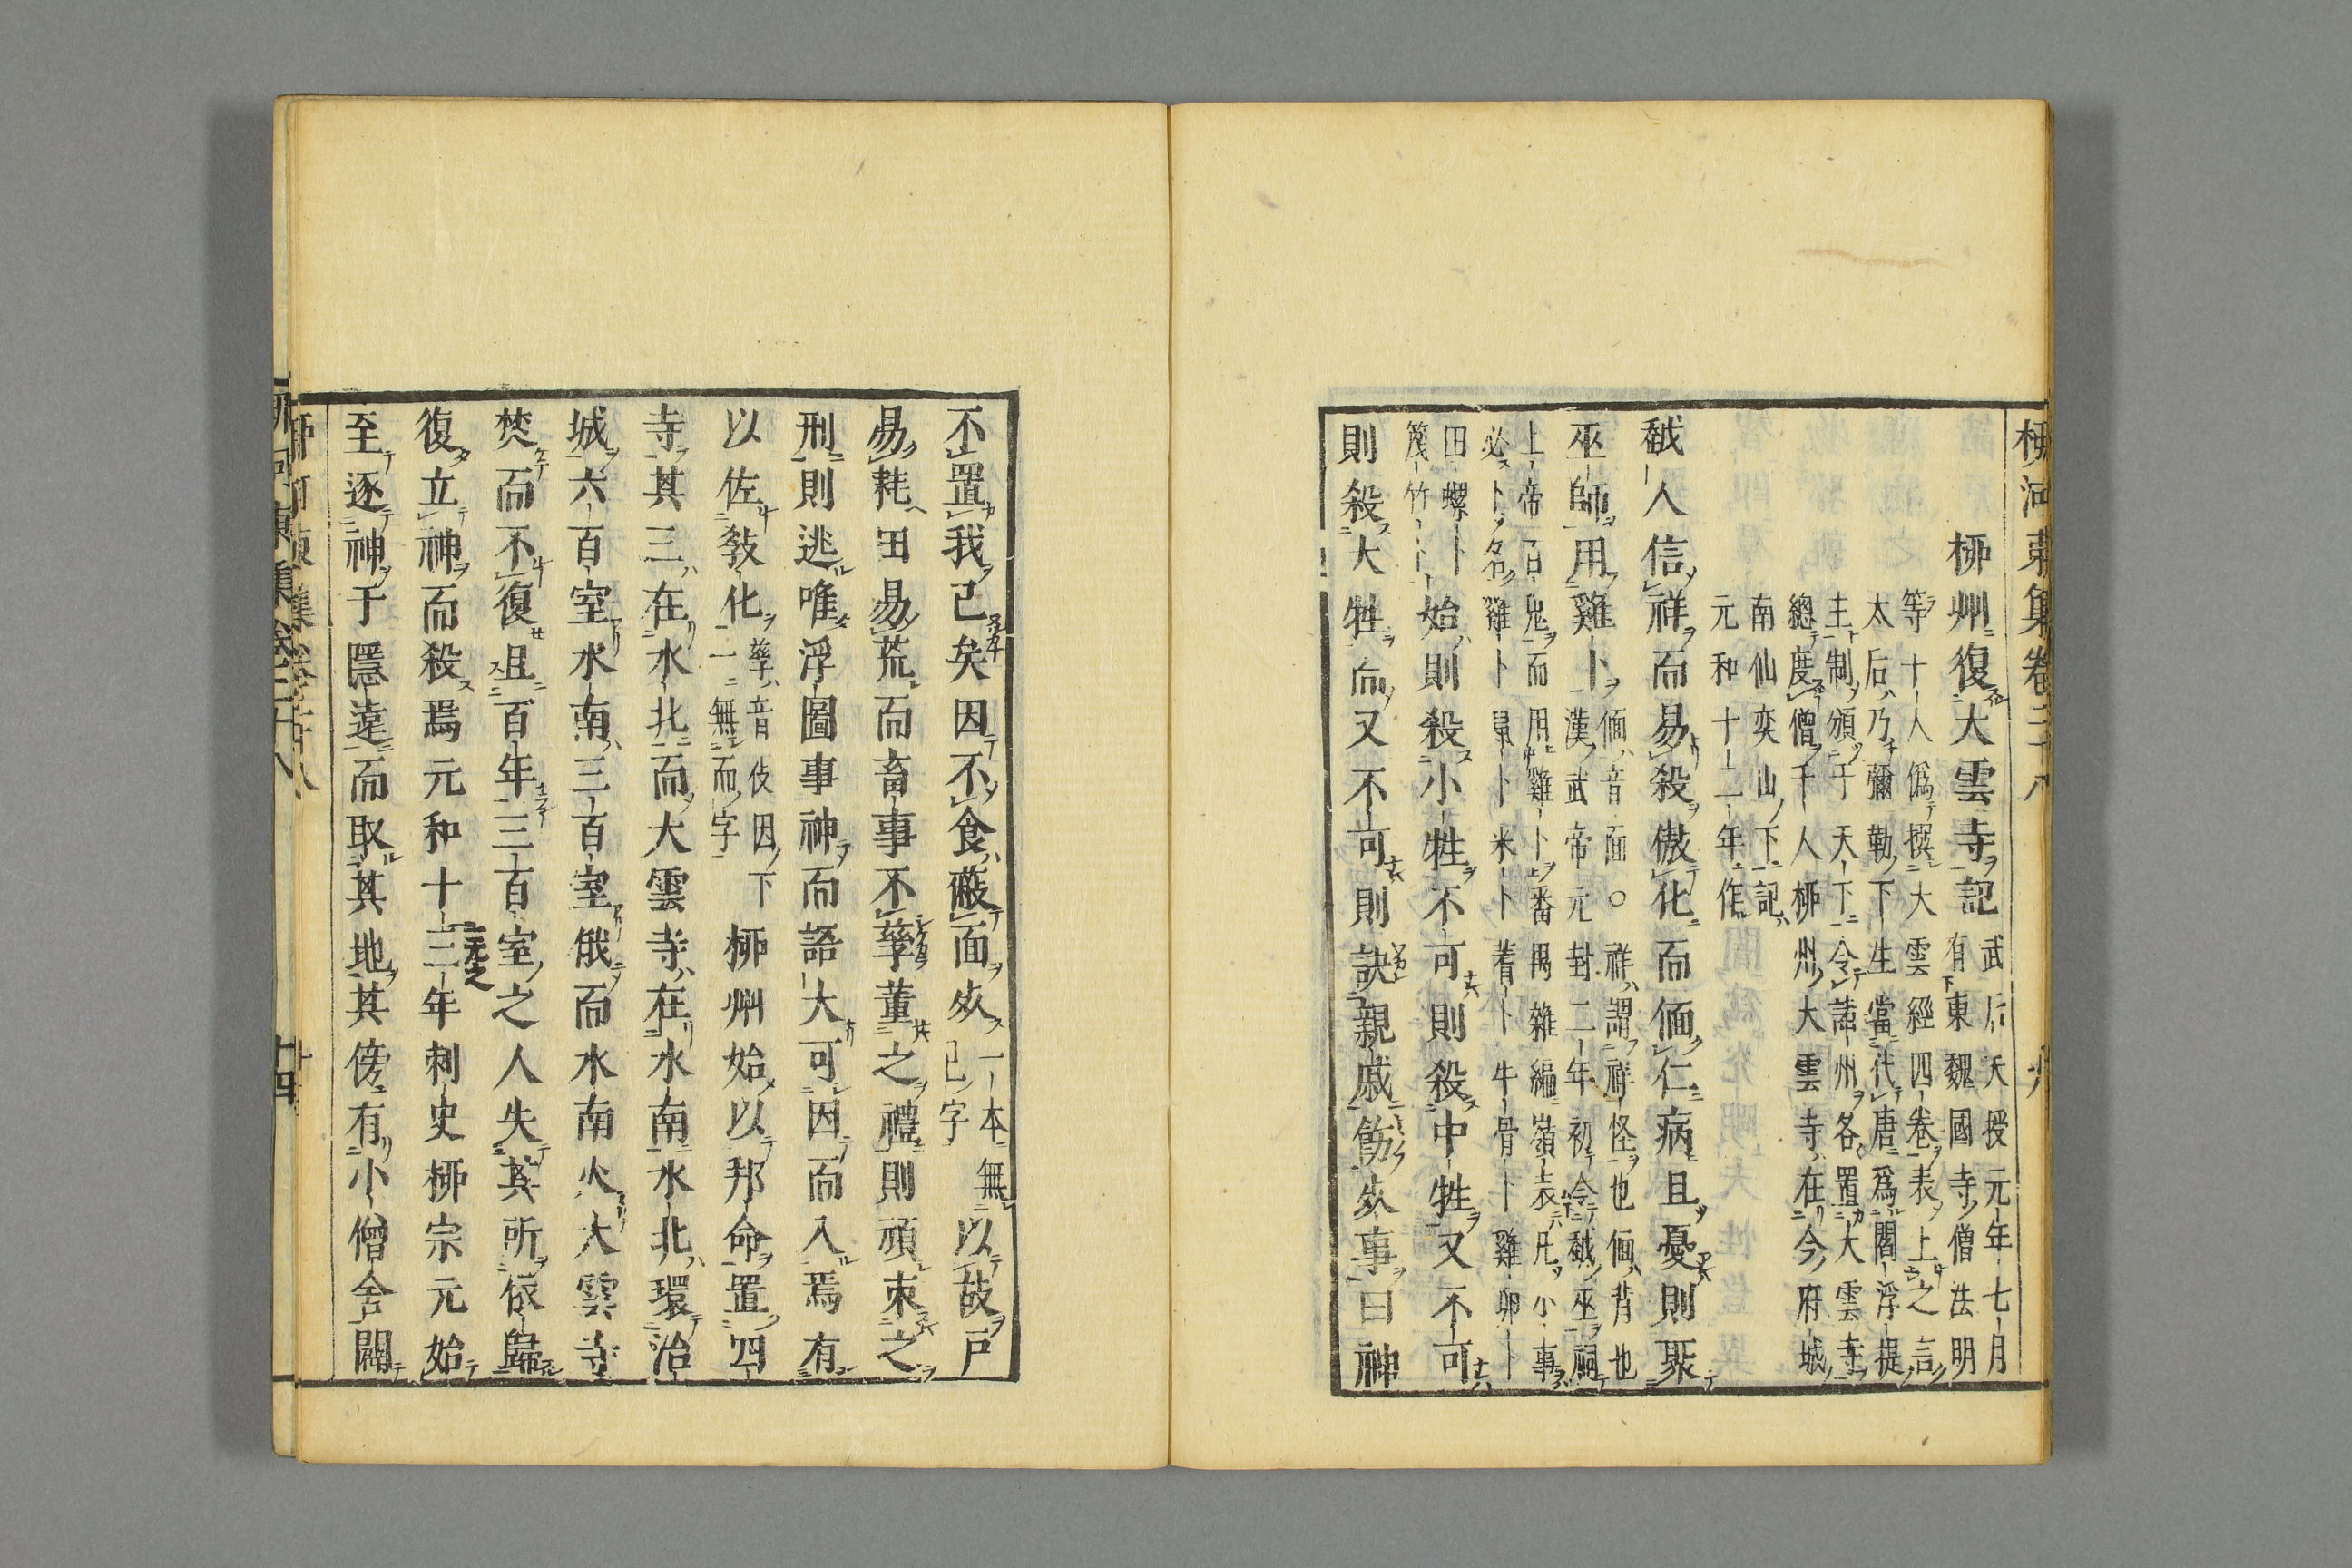 柳河東集卷二十八
柳州復大雲寺記
武后天授元年七月
有東魏國寺僧法明
等十人僞撰大雲經四卷表上之言
太后乃彌勒下生當代唐爲閻浮提
主制頒于天下令諸州各置大雲寺
總度僧千人柳州大雲寺在今府城
南仙奕山下記
元和十二年作
越人信祥而易殺傲化而偭仁病且憂則聚
巫師用雞卜
偭音面○祥謂祥怪也偭背也
漢武帝元封二年初令越巫祠
上帝百鬼而用雞卜番禺雜編嶺表凡小事
必卜名雞卜鼠卜米卜蓍卜牛骨卜雞卵卜
田螺卜
篾竹卜
始則殺小牲不可則殺中牲又不可
則殺大牲而又不可則訣親戚飭死事曰神
不置我已矣因不食蔽面死
一本無
已字
以故戶
易耗田易荒而畜事不孳董之禮則頑束之
刑則逃唯浮圖事神而語大可因而入焉有
以佐教化
孳音伎因下
一無而字
柳州始以邦命置四
寺其三在水北而大雲寺在水南水北環治
城六百室水南三百室俄而水南火大雲寺
焚而不復且百年三百室之人失其所依歸
復立神而殺焉元和十二年刺史柳宗元始
至逐神于隱遠而取其地其傍有小僧舍闢
柳河東集卷二十八
十四